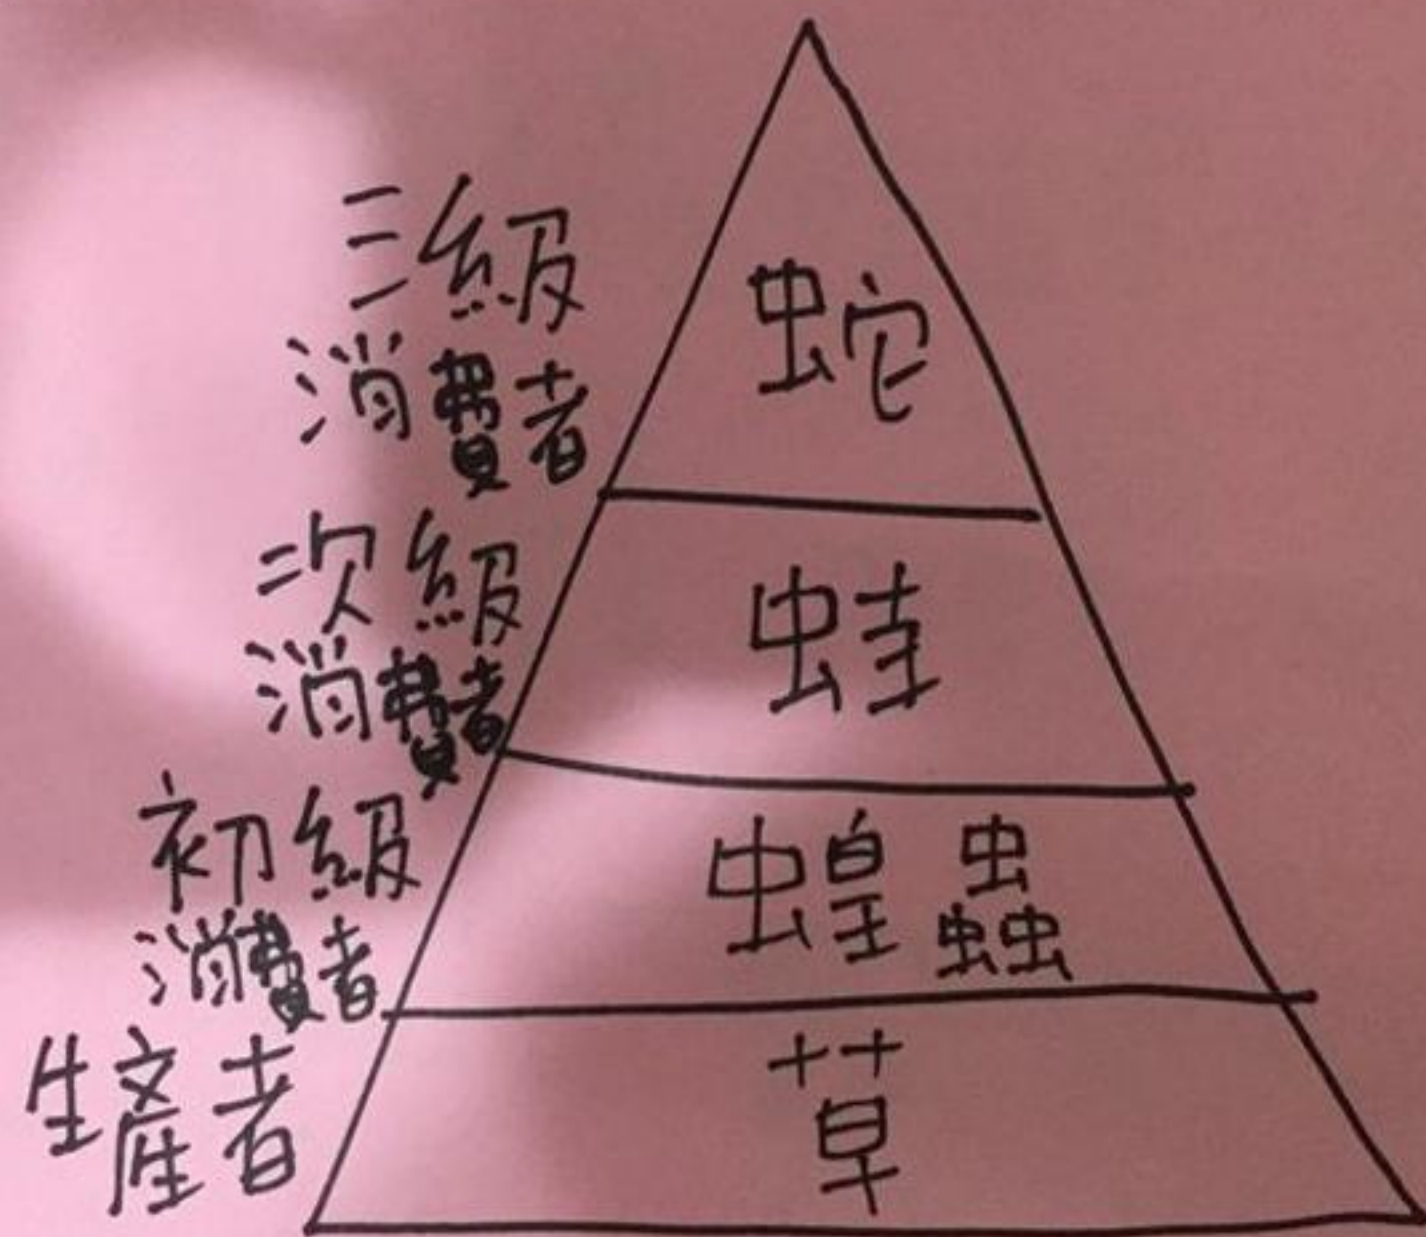 三級
消費者
蛇
次級
消費者
蛙
初級
消費者
蝗蟲
生產者
草